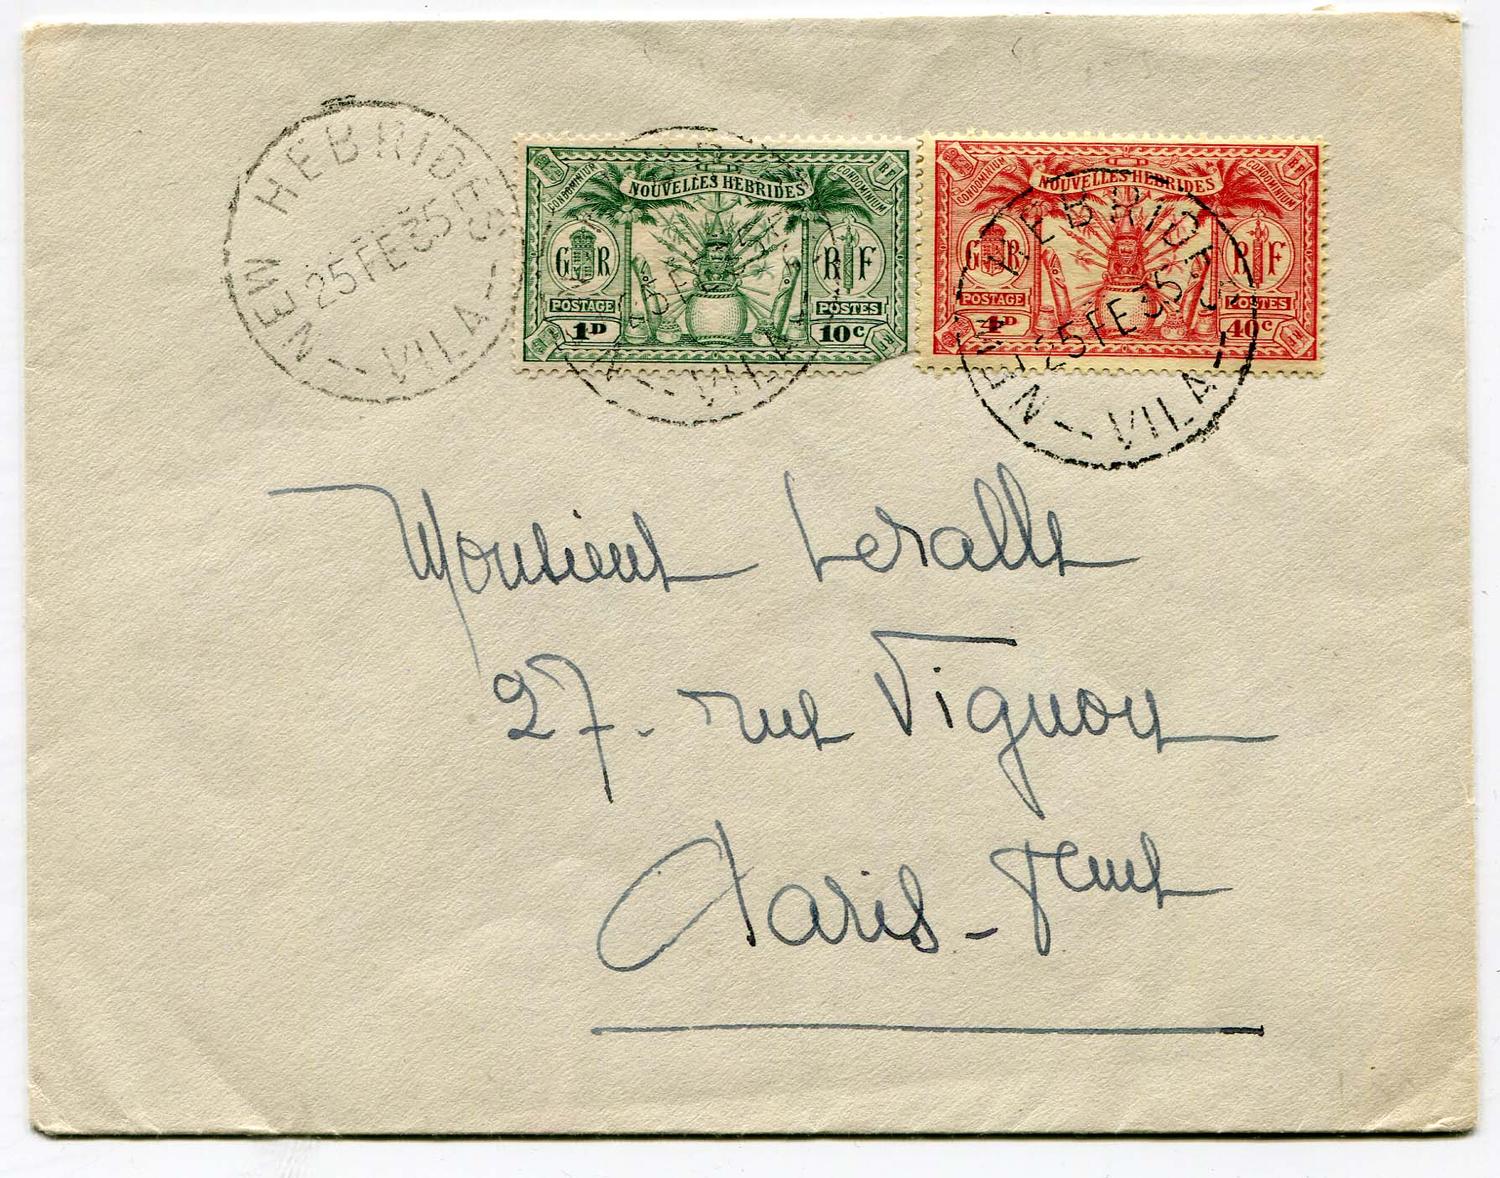 NEW HEBRIDES
25 FE 35
VILA
CONDOMINIUM
NOUVELLES HEBRIDES
CONDOMINIUM
RF
G R
R F
POSTAGE
POSTES
1D
10c
VILA
CONDOMINIUM
NOUVELLES HEBRIDES
CONDOMINIUM
RF
G R
R F
POSTAGE
POSTES
4D
40c
RF
NEW HEBRIDES
25 FE 35
VILA
Monsieur Leralle
27. rue Vignon
Paris